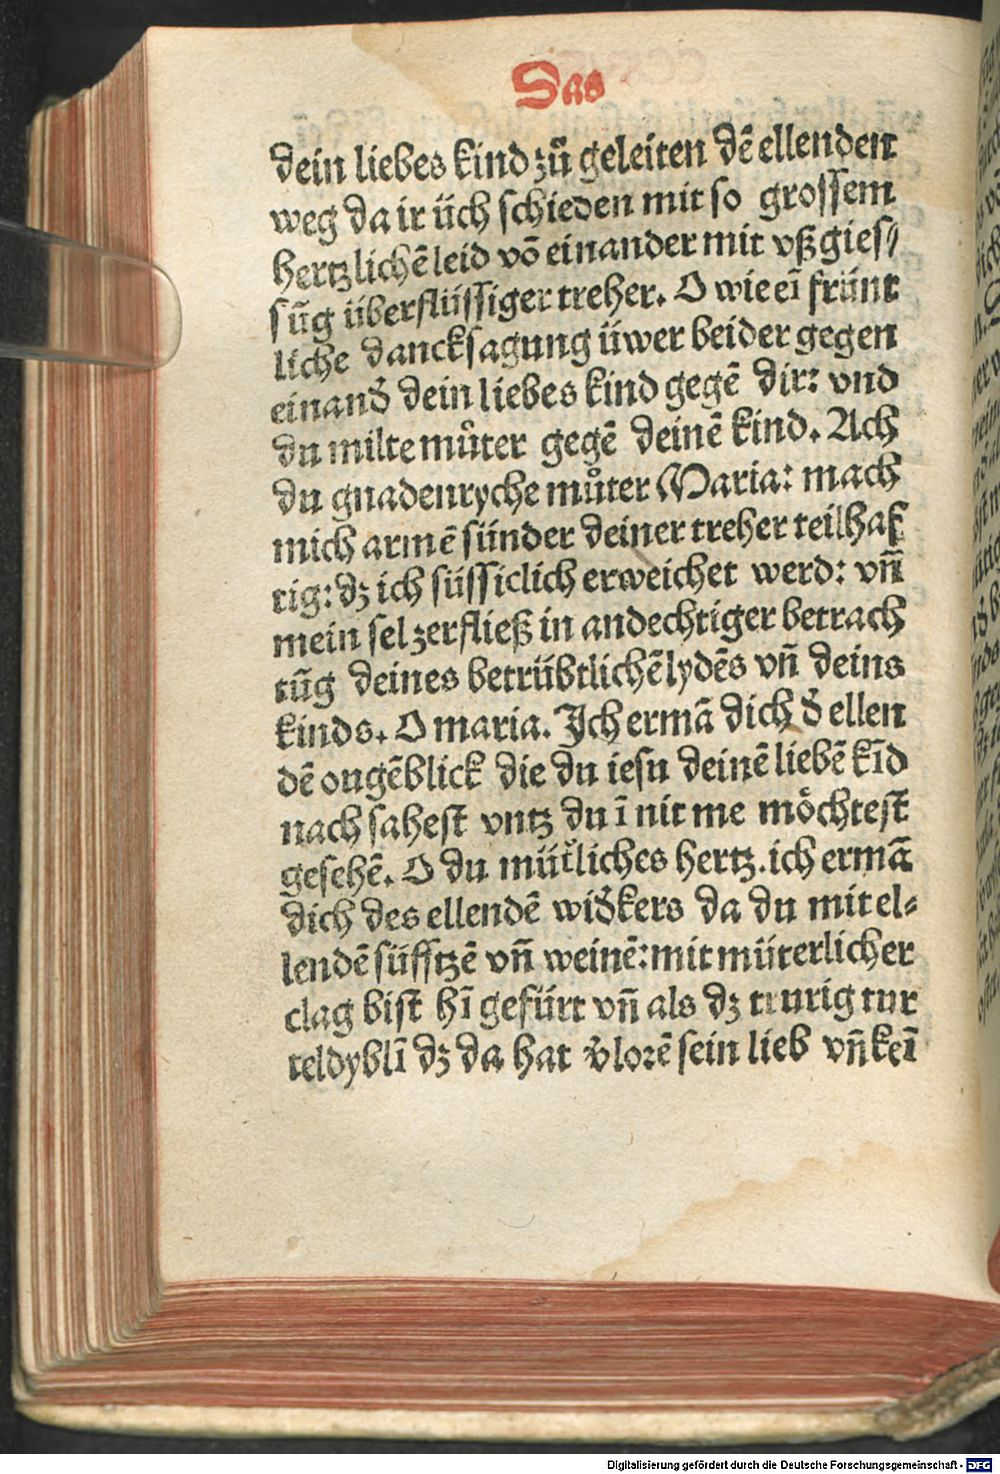 Das
dein liebes kind zů geleiten dē ellenden
weg da ir üch schieden mit so grossem
hertzlichē leid vō einander mit vßgies⸗
sūg überflüssiger treher. O wie eī frünt
liche dancksagung üwer beider gegen
einanđ dein liebes kind gegē dir: vnd
du milte můter gegē deinē kind. Ach
du gnadenryche můter Maria: mach
mich armē sünder deiner treher teilhaf
tig: dz ich süssiclich erweichet werd: vñ
mein sel zerfließ in andechtiger betrach
tūg deines betrübtlichē lydēs vñ deins
kinds. O maria. Ich ermā dich đ ellen
dē ougēblick die du iesu deinē liebē kīd
nach sahest vntz du ī nit me möchtest
gesehē. O du mütliches hertz. ich ermā
dich des ellendē wiđkers da du mit el⸗
lendē süfftzē vñ weinē: mit müterlicher
clag bist hī gefürt vñ als dz trurig tur
teldyblī dz da hat v̄lorē sein lieb vñ keī
Digitalisierung gefördert durch die Deutsche Forschungsgemeinschaft - DFG